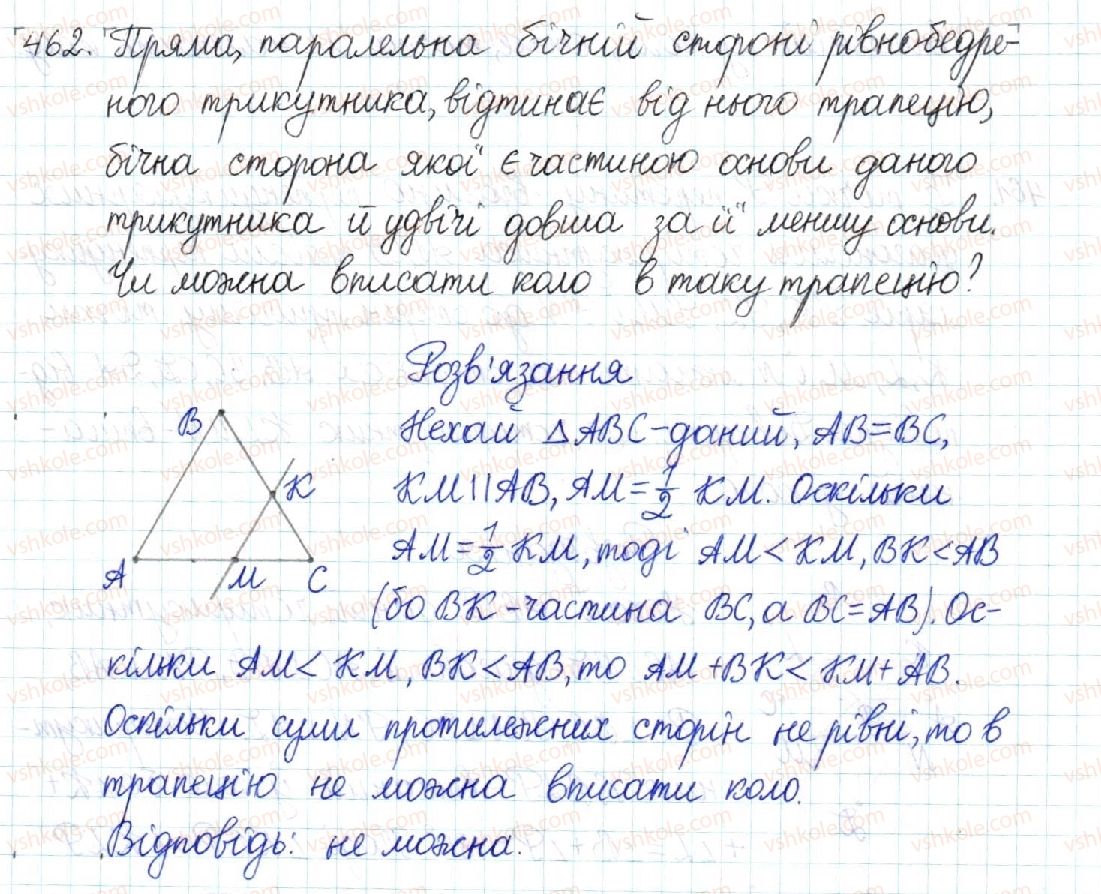 462. Пряма, паралельна бічній стороні рівнобедре-
ного трикутника, відтинає від нього трапецію,
бічна сторона якої є частиною основи даного
трикутника й удвічі довша за її меншу основи.
Чи можна вписати коло в таку трапецію?
Розв'язання
B
K
A
M
C
Нехай △ABC-даний, AB=BC,
KM||AB, AM=1/2 KM. Оскільки
AM=1/2 KM, тоді AM<KM, BK<AB
(бо BK-частина BC, а BC=AB). Ос-
кільки AM<KM, BK<AB, то AM+BK<KM+AB.
Оскільки суми протилежних сторін не рівні, то в
трапецію не можна вписати коло.
Відповідь: не можна.